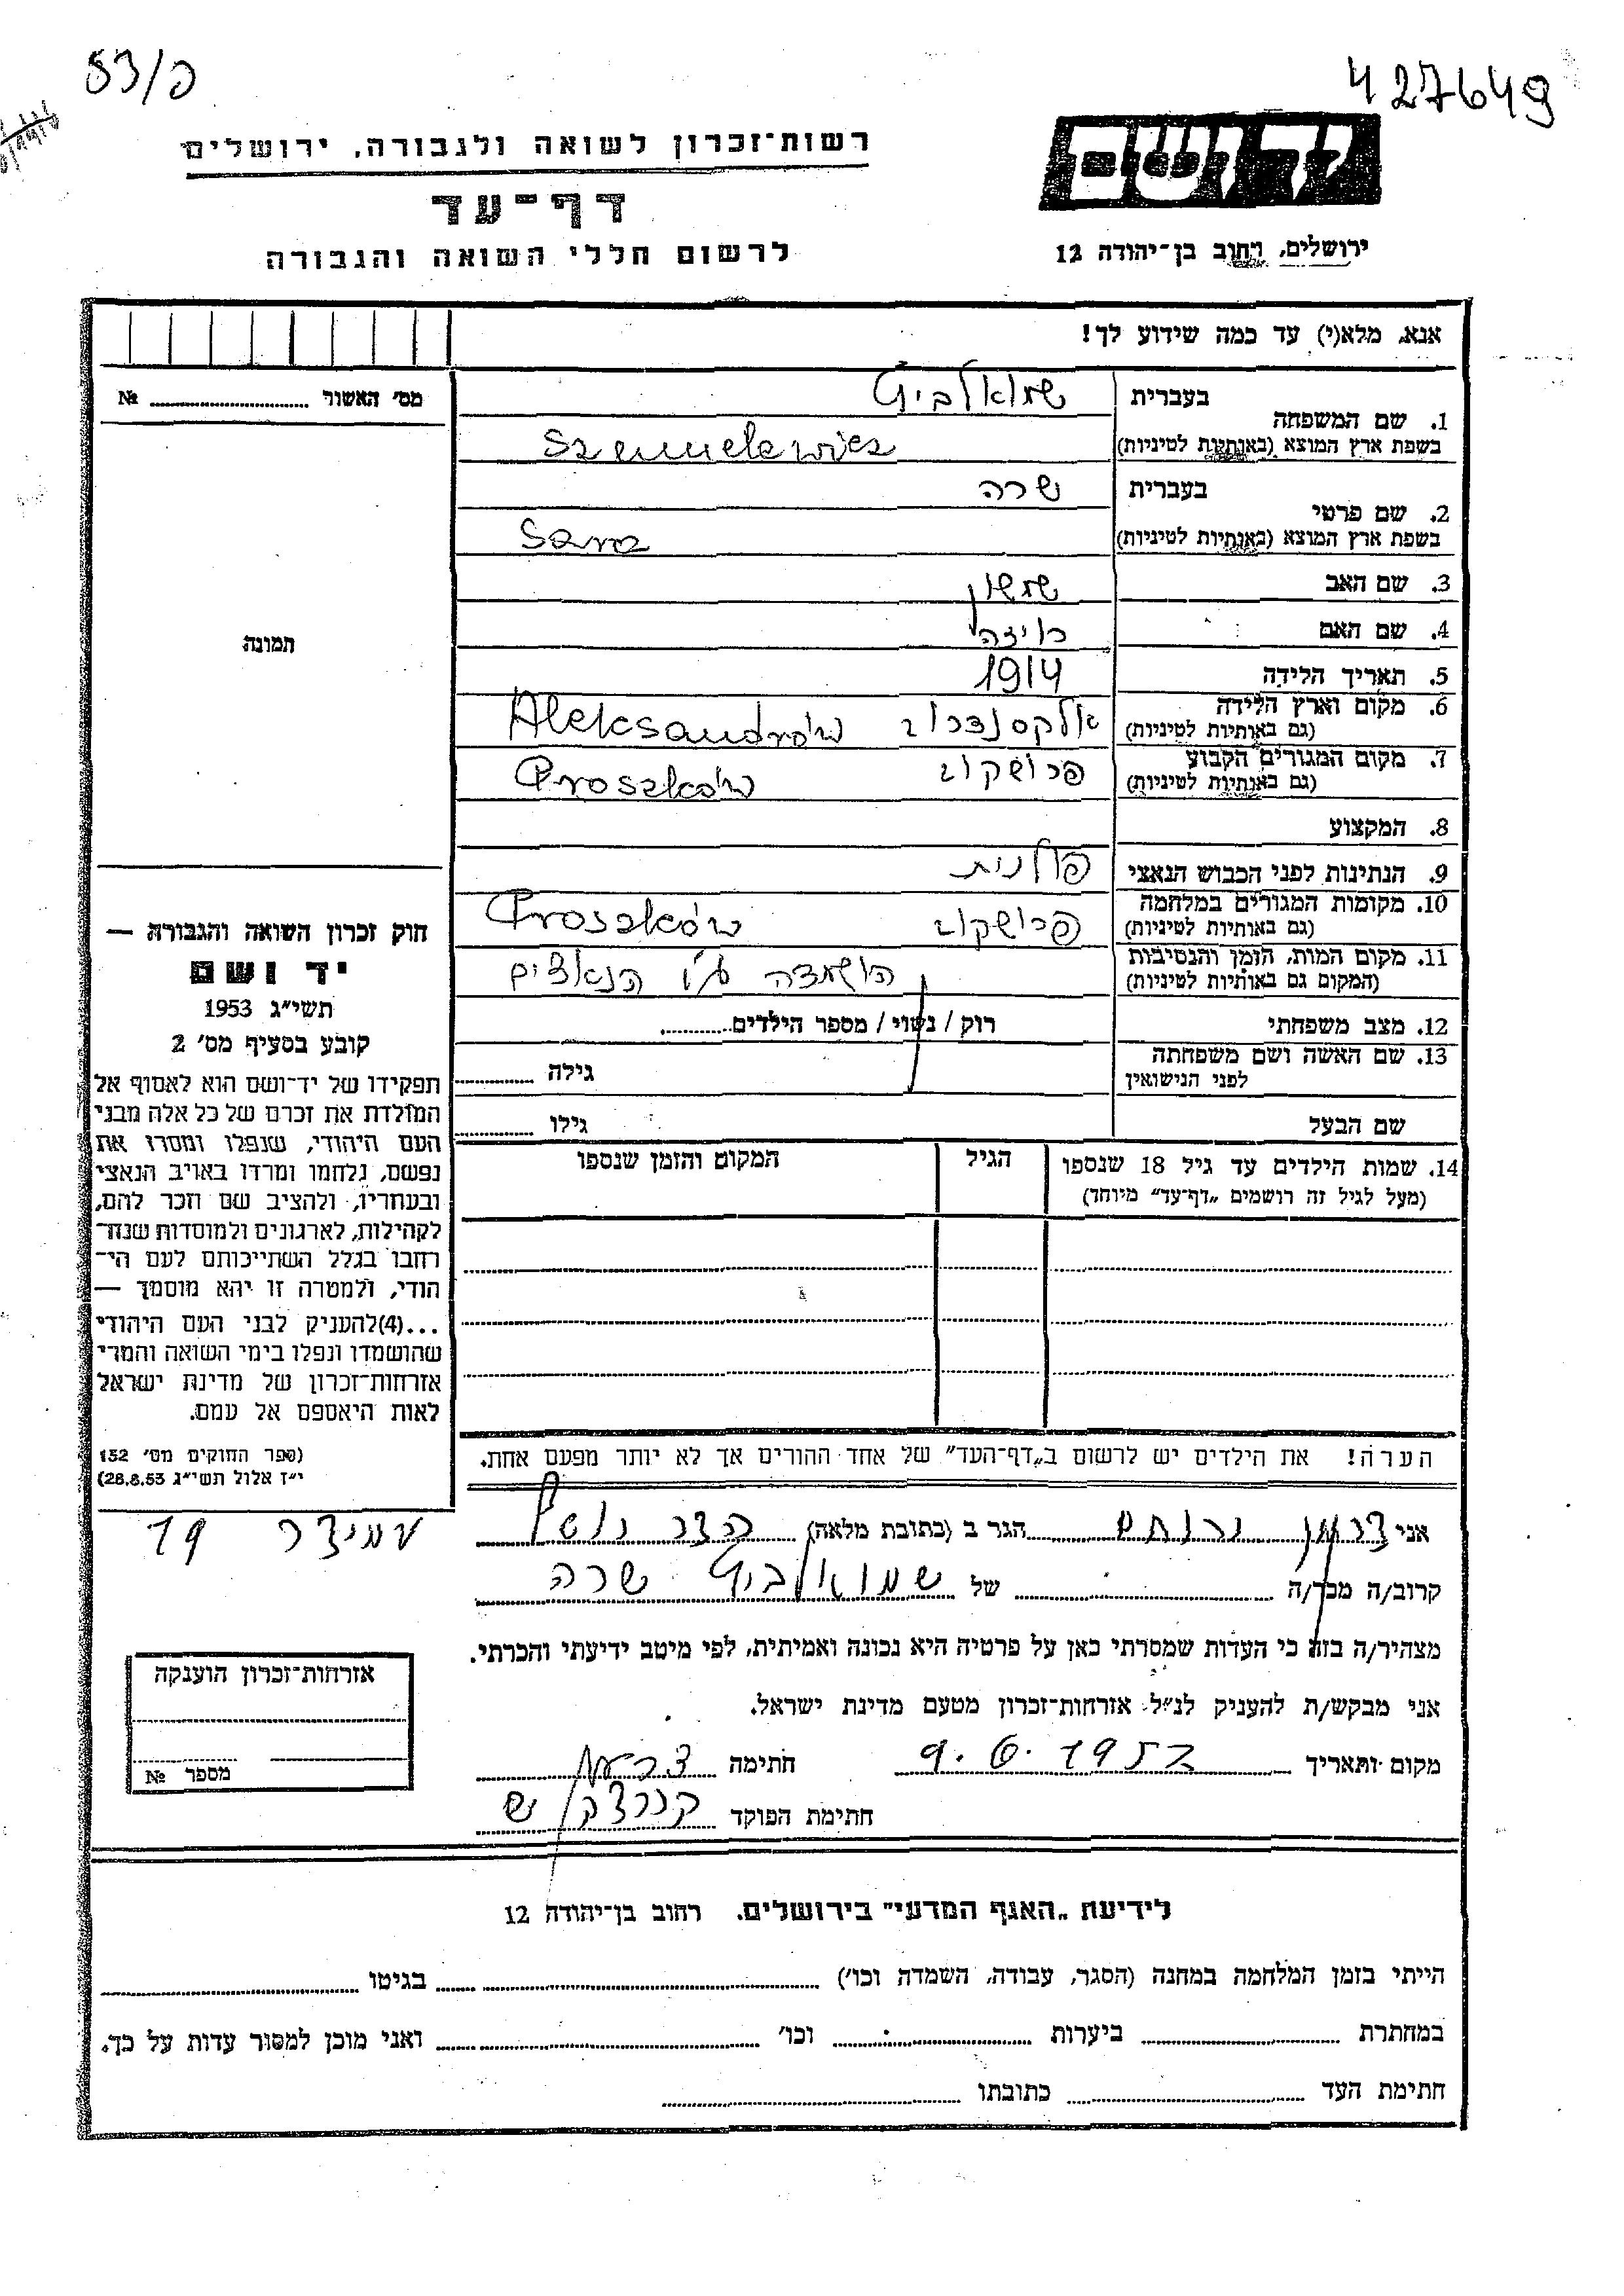 53/פ
427649
ידושם
רשות־זכרון לשואה ולגבורה, ירושלים
דף־עד
לרשום חללי השואה והגבורה
ירושלים, רחוב בן־יהודה 12
אנא, מלא(י) עד כמה שידוע לך!
מס' האשור № 
תמונה
1. שם המשפחה בעברית שמואלביץ
בשפת ארץ המוצא (באותיות לטיניות) Szemuelewicz
2. שם פרטי בעברית שרה
בשפת ארץ המוצא (באותיות לטיניות) Sara
3. שם האב שמשון
4. שם האם
5. תאריך הלידה 1914
6. מקום וארץ הלידה אלקסנדרוב Aleksandrów
(גם באותיות לטיניות)
7. מקום המגורים הקבוע פרושקוב Proszków
(גם באותיות לטיניות)
8. המקצוע
9. הנתינות לפני הכבוש הנאצי פולנית
10. מקומות המגורים במלחמה פרושקוב Proszków
(גם באותיות לטיניות)
11. מקום המות, הזמן והנסיבות הושמדה ע"י הנאצים
(המקום גם באותיות לטיניות)
12. מצב משפחתי רוק / נשוי / מספר הילדים
13. שם האשה ושם משפחתה גילה
לפני הנישואין
שם הבעל גילו
14. שמות הילדים עד גיל 18 שנספו הגיל המקום והזמן שנספו
(מעל לגיל זה רושמים „דף־עד" מיוחד)
חוק זכרון השואה והגבורה —
יד ושם
תשי"ג 1953
קובע בסעיף מס' 2
תפקידו של יד־ושם הוא לאסוף אל
המולדת את זכרם של כל אלה מבני
העם היהודי, שנפלו ומסרו את
נפשם, נלחמו ומרדו באויב הנאצי
ובעוזריו, ולהציב שם וזכר להם,
לקהילות, לארגונים ולמוסדות שנח־
רבו בגלל השתייכותם לעם הי־
הודי, ולמטרה זו יהא מוסמך —
...(4)להעניק לבני העם היהודי
שהושמדו ונפלו בימי השואה והמרי
אזרחות־זכרון של מדינת ישראל
לאות היאספם אל עמם.
(ספר החוקים מס' 132
י"ז אלול תשי"ג 28.8.53)
הערה! את הילדים יש לרשום ב„דף־העד" של אחד ההורים אך לא יותר מפעם אחת.
אני נחום הגר ב (כתובת מלאה) הדר יוסף עמידר 19
קרוב/ה מכר/ה של שמואלביץ שרה
מצהיר/ה בזה כי העדות שמסרתי כאן על פרטיה היא נכונה ואמיתית, לפי מיטב ידיעתי והכרתי.
אני מבקש/ת להעניק לנ"ל אזרחות־זכרון מטעם מדינת ישראל.
מקום ותאריך 9.6.1957 חתימה
חתימת הפוקד
אזרחות־זכרון הוענקה
מספר №
לידיעת „האגף המדעי" בירושלים, רחוב בן־יהודה 12
הייתי בזמן המלחמה במחנה (הסגר, עבודה, השמדה וכו') בגיטו
במחתרת ביערות וכו' ואני מוכן למסור עדות על כך.
חתימת העד כתובתו